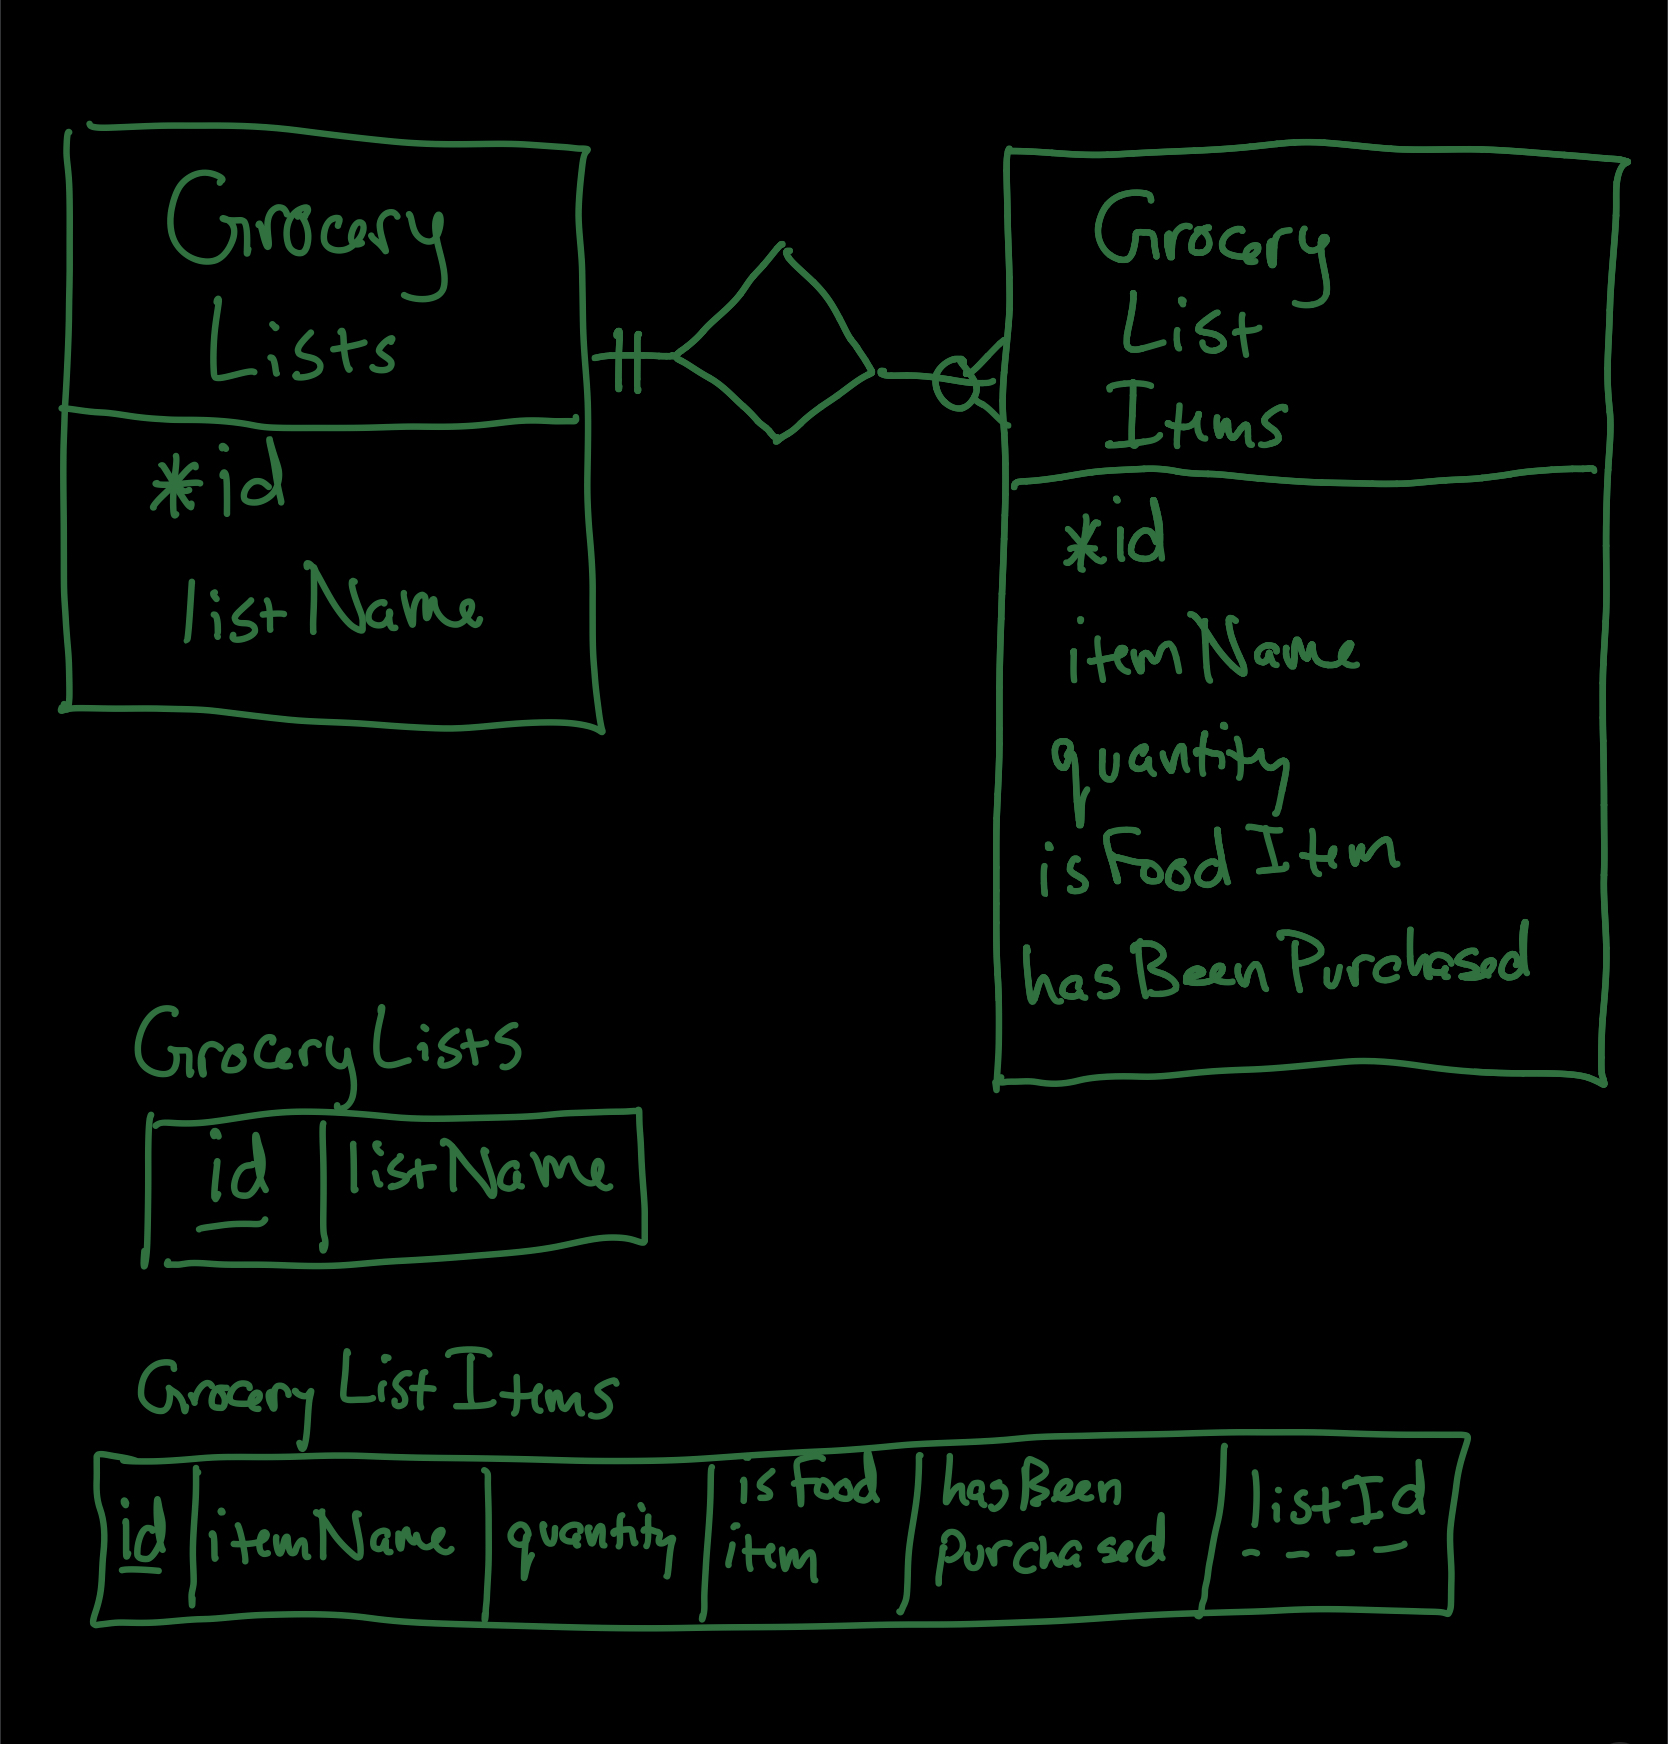 Grocery
Lists
*id
listName
Grocery
List
Items
*id
itemName
quantity
isFoodItem
hasBeenPurchased
GroceryLists
id
listName
GroceryListItems
id
itemName
quantity
isFood
item
hasBeen
purchased
listId